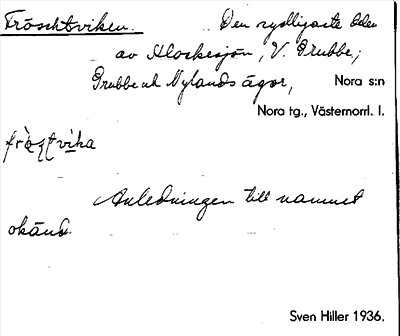 Fröschtviken. Den sydligaste delen
av Alockesjön, V. Grubbe,
Grubbe och Nylands ägor, Nora s:n
Nora tg., Västernorrl. l.
Anledningen till namnet
okänd.
Sven Hiller 1936.